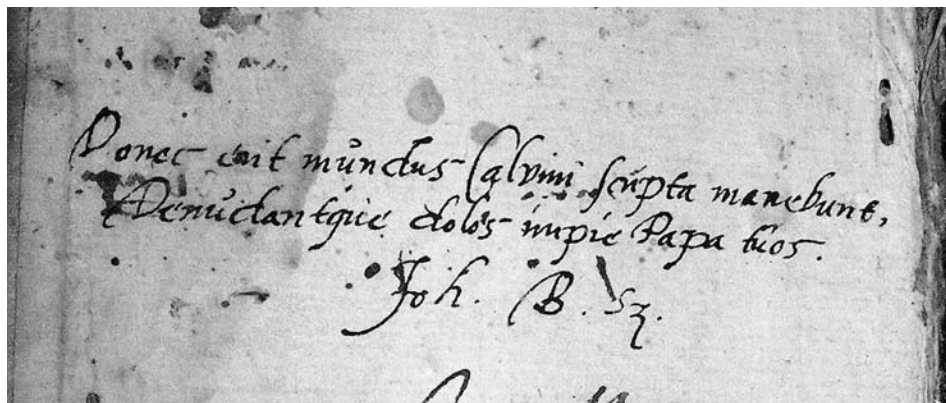 Donec erit mundus Calvini scripta manebunt,
Denudantque dolos impie Papa tuos.
Joh. B. Sz.